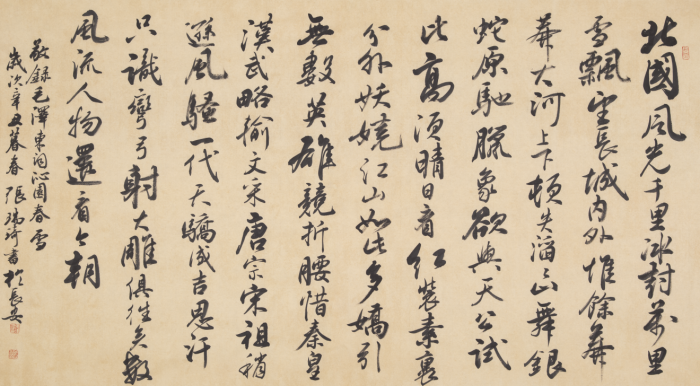 北國風光千里冰封萬里
雪飄望長城內外惟餘莽
莽大河上下頓失滔〻山舞銀
蛇原馳臘象欲與天公試
比高須晴日看紅裝素裹
分外妖嬈江山如此多嬌引
無數英雄競折腰惜秦皇
漢武略輸文采唐宗宋祖稍
遜風騷一代天驕成吉思汗
只識彎弓射大雕俱往矣數
風流人物還看今朝
敬錄毛澤東詞沁園春雪
歲次辛丑暮春張瑞琦書於長安